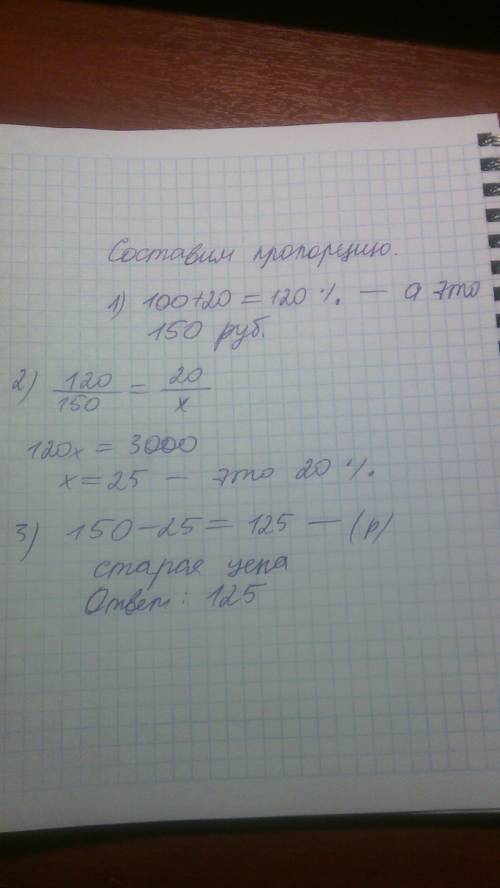 Составим пропорцию.
1) 100+20 = 120 % — а это
150 руб.
2) 120/150 = 20/x
120x = 3000
x = 25 — это 20 %.
3) 150 - 25 = 125 — (р)
старая цена
Ответ: 125